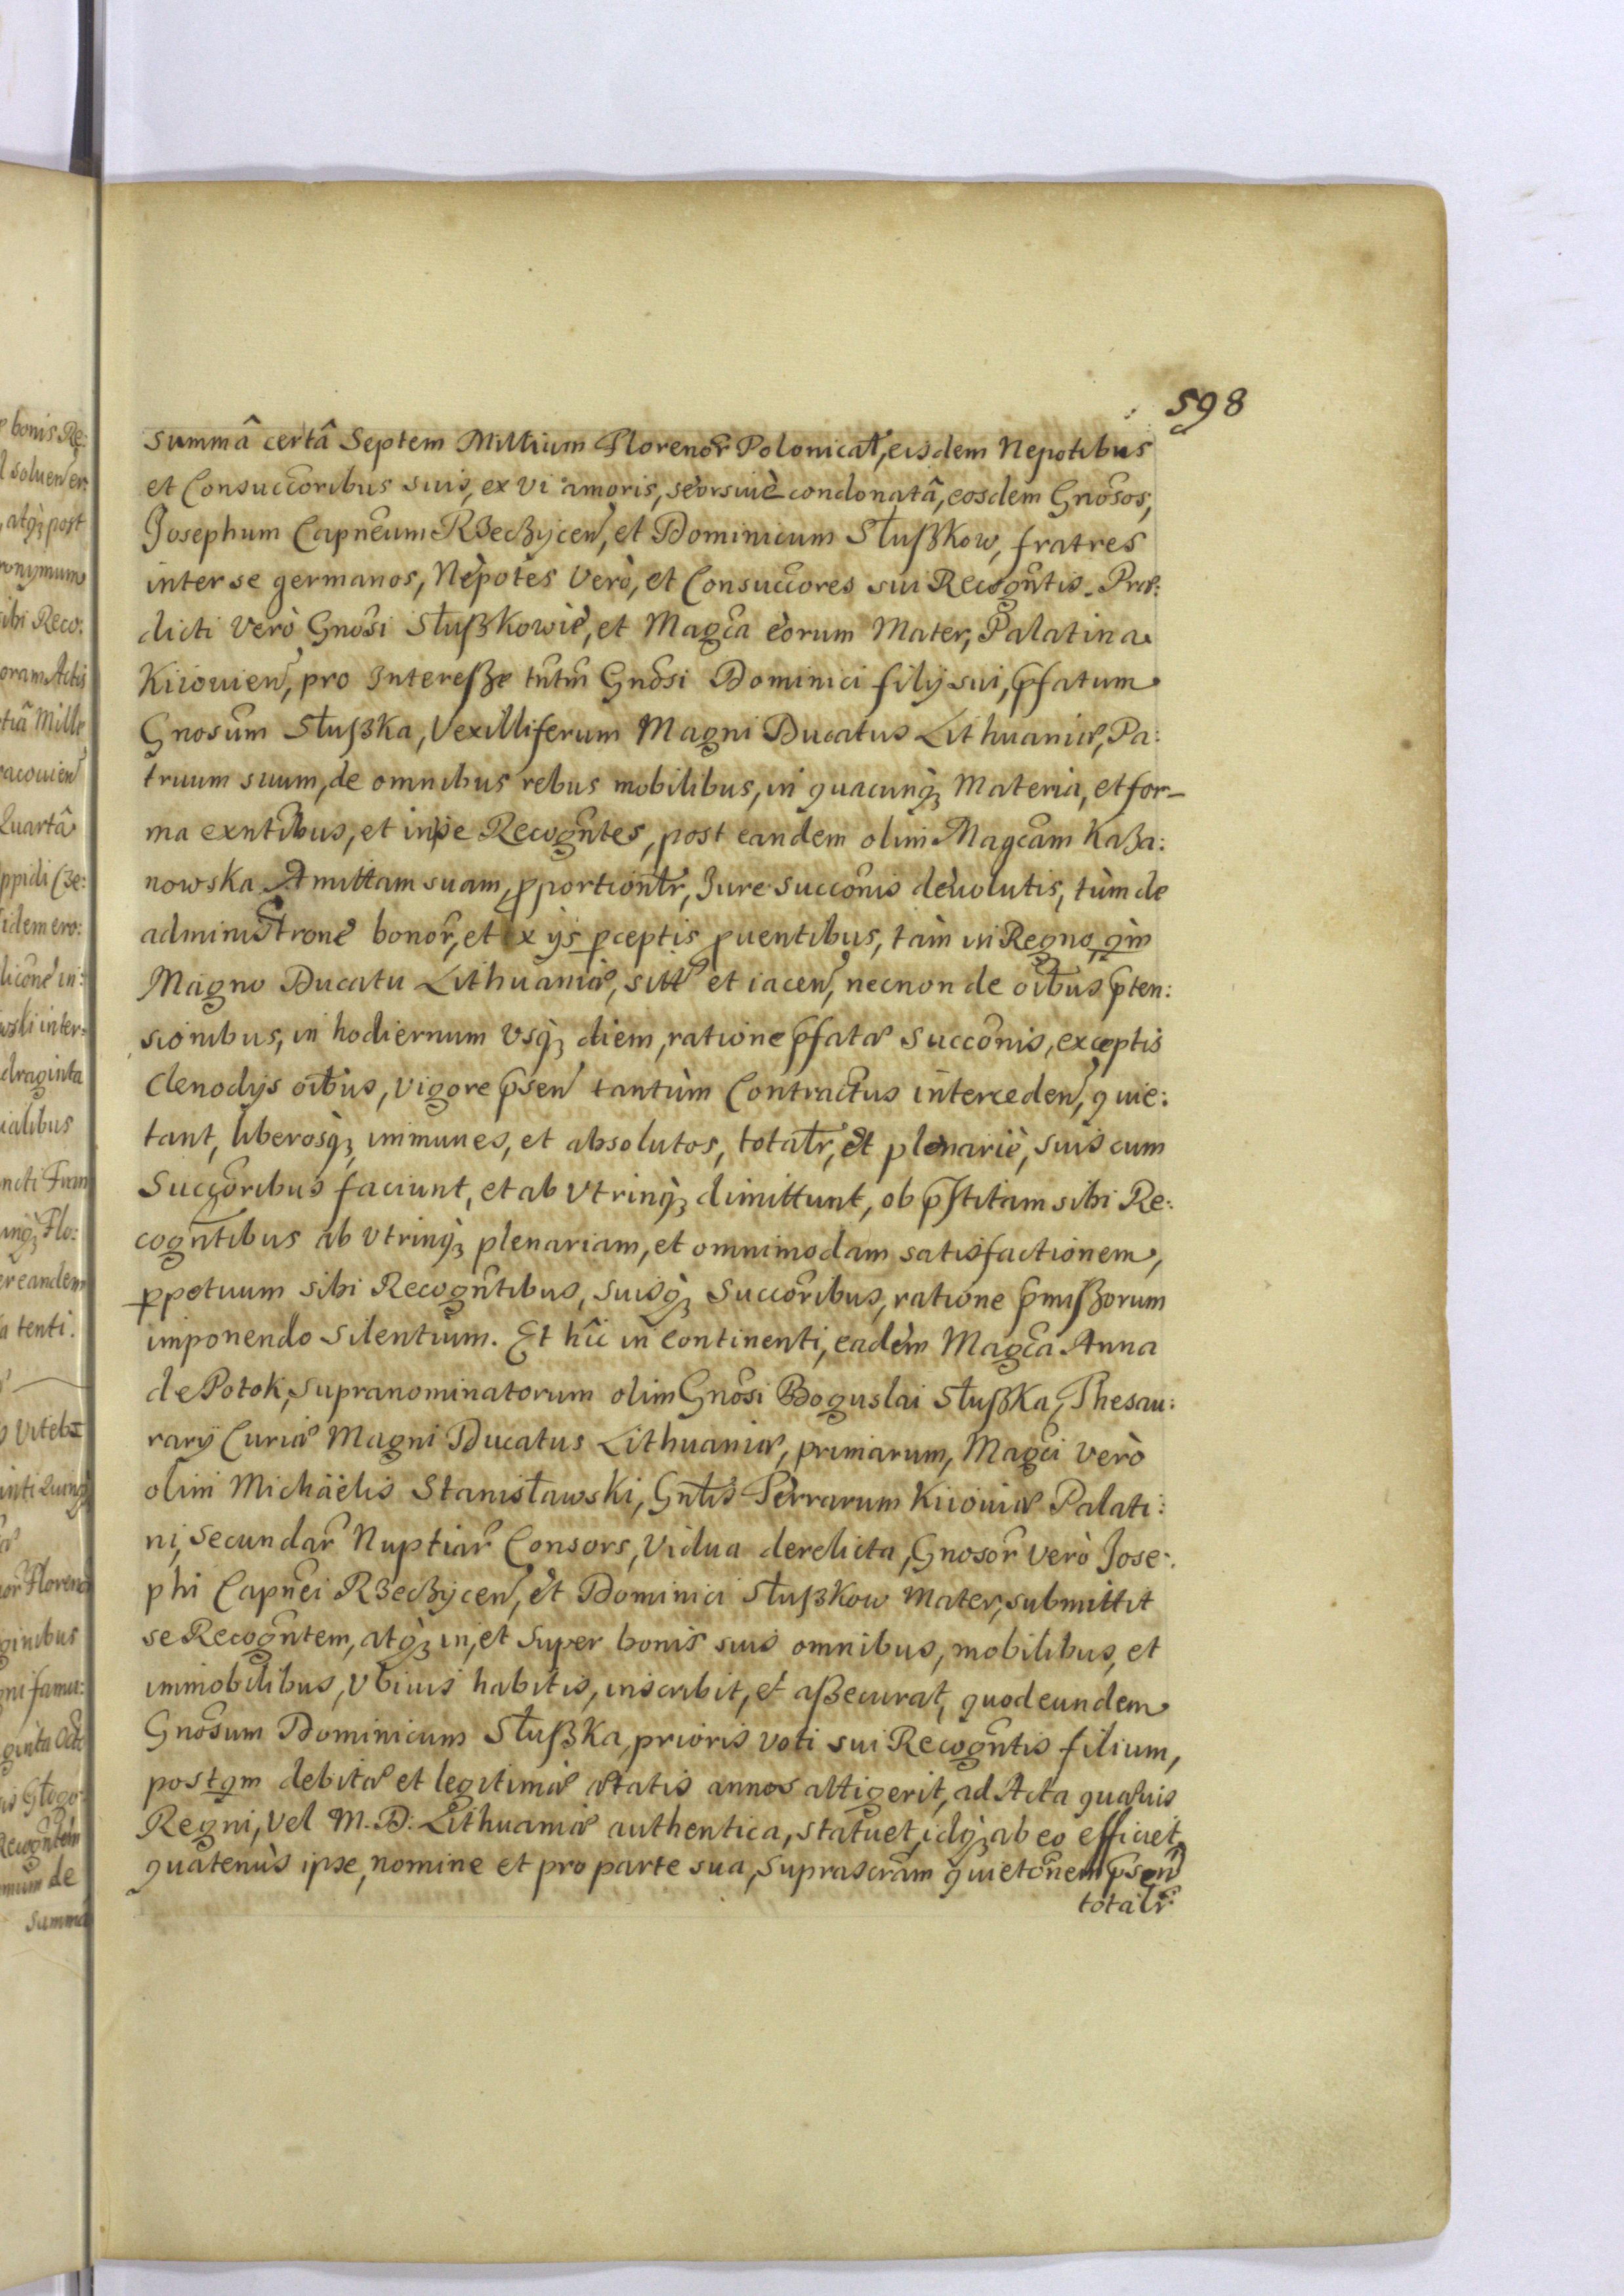 598
summâ certâ Septem Millium Florenor̃ Polonical̃, eisdem Nepotibus
et Consuccõribus suis, ex vi amoris, seorsiuè condonatâ, eosdem Gnõsos,
Josephum Capnẽum Rzeczyceñ, et Dominicum Słuszkow, fratres
inter se germanos, Nepotes verò, et Consuccõres sui Recogñtis. Præ:
dicti verò Gnõsi Słuszkowie, et Magc̃a eorum Mater, Palatina
Kiiouieñ, pro Interesze tñtm̃ Gnõsi Dominici filij sui, p̃fatum
Gnosũm Słuszka, Vexilliferum Magni Ducatus Lithuaniæ, Pa:
truum suum, de omnibus rebus mobilibus, in quacunq̃ Materia, et for-
ma exñtibus, et in se Recogñtes, post eandem olim Magcãm Kaza:
nowska Amittam suam, proportionl̃r, Jure succõnis deuolutis, tùm de
administrõne bonor̃, et ex ijs perceptis puentibus, tàm in Regno, qm̃
Magno Ducatu Lithuaniæ, sitt̃ et iaceñ, necnon de oĩbus p̃ten:
sionibus, in hodiernum vsq̃ diem, ratione p̃fatæ succõnis, exceptis
Clenodijs oĩbus, vigore p̃señ tantùm Contractus intercedeñ, quie:
tant, liberosq̃, immunes, et absolutos, total̃r, et plenariè, suis cum
Succõribus faciunt, et ab vtrinq̃ dimittunt, ob p̃stitam sibi Re:
cogñtibus ab vtrinq̃ plenariam, et omnimodam satisfactionem,
ppetuum sibi Recogñtibus, suisq̃ Succõribus, ratione p̃miszorum
imponendo silentium. Et hîc in continenti, eadem Magc̃a Anna
de Potok, supranominatorum olim Gnõsi Boguslai Słuszka, Thesau:
rarij Curiæ Magni Ducatus Lithuaniæ, primarum, Magc̃i verò
olim Michäelis Stanisławski, Gñlis Terrarum Kiiouiæ Palati:
ni, Secundar̃ Nuptiar̃ Consors, Vidua derelicta, Gnosor̃ verò Jose:
phi Capnẽi Rzeczyceñ, et Dominici Słuszkow Mater, submittit
se Recogñtem, atq̃ in, et super bonis suis omnibus, mobilibus, et
immobilibus, vbiuis habitis, inscribit, et aszecurat, quod eundem
Gnõsum Dominicum Słuszka, prioris voti sui Recogñtis filium,
postqm̃ debitæ et legitimæ ætatis annos attigerit, ad Acta quæuis
Regni, vel M. D. Lithuaniæ authentica, statuet, idq̃ ab eo efficiet,
quatenùs ipse, nomine et pro parte sua, suprascrãm quietõnem p̃señ
total̃r